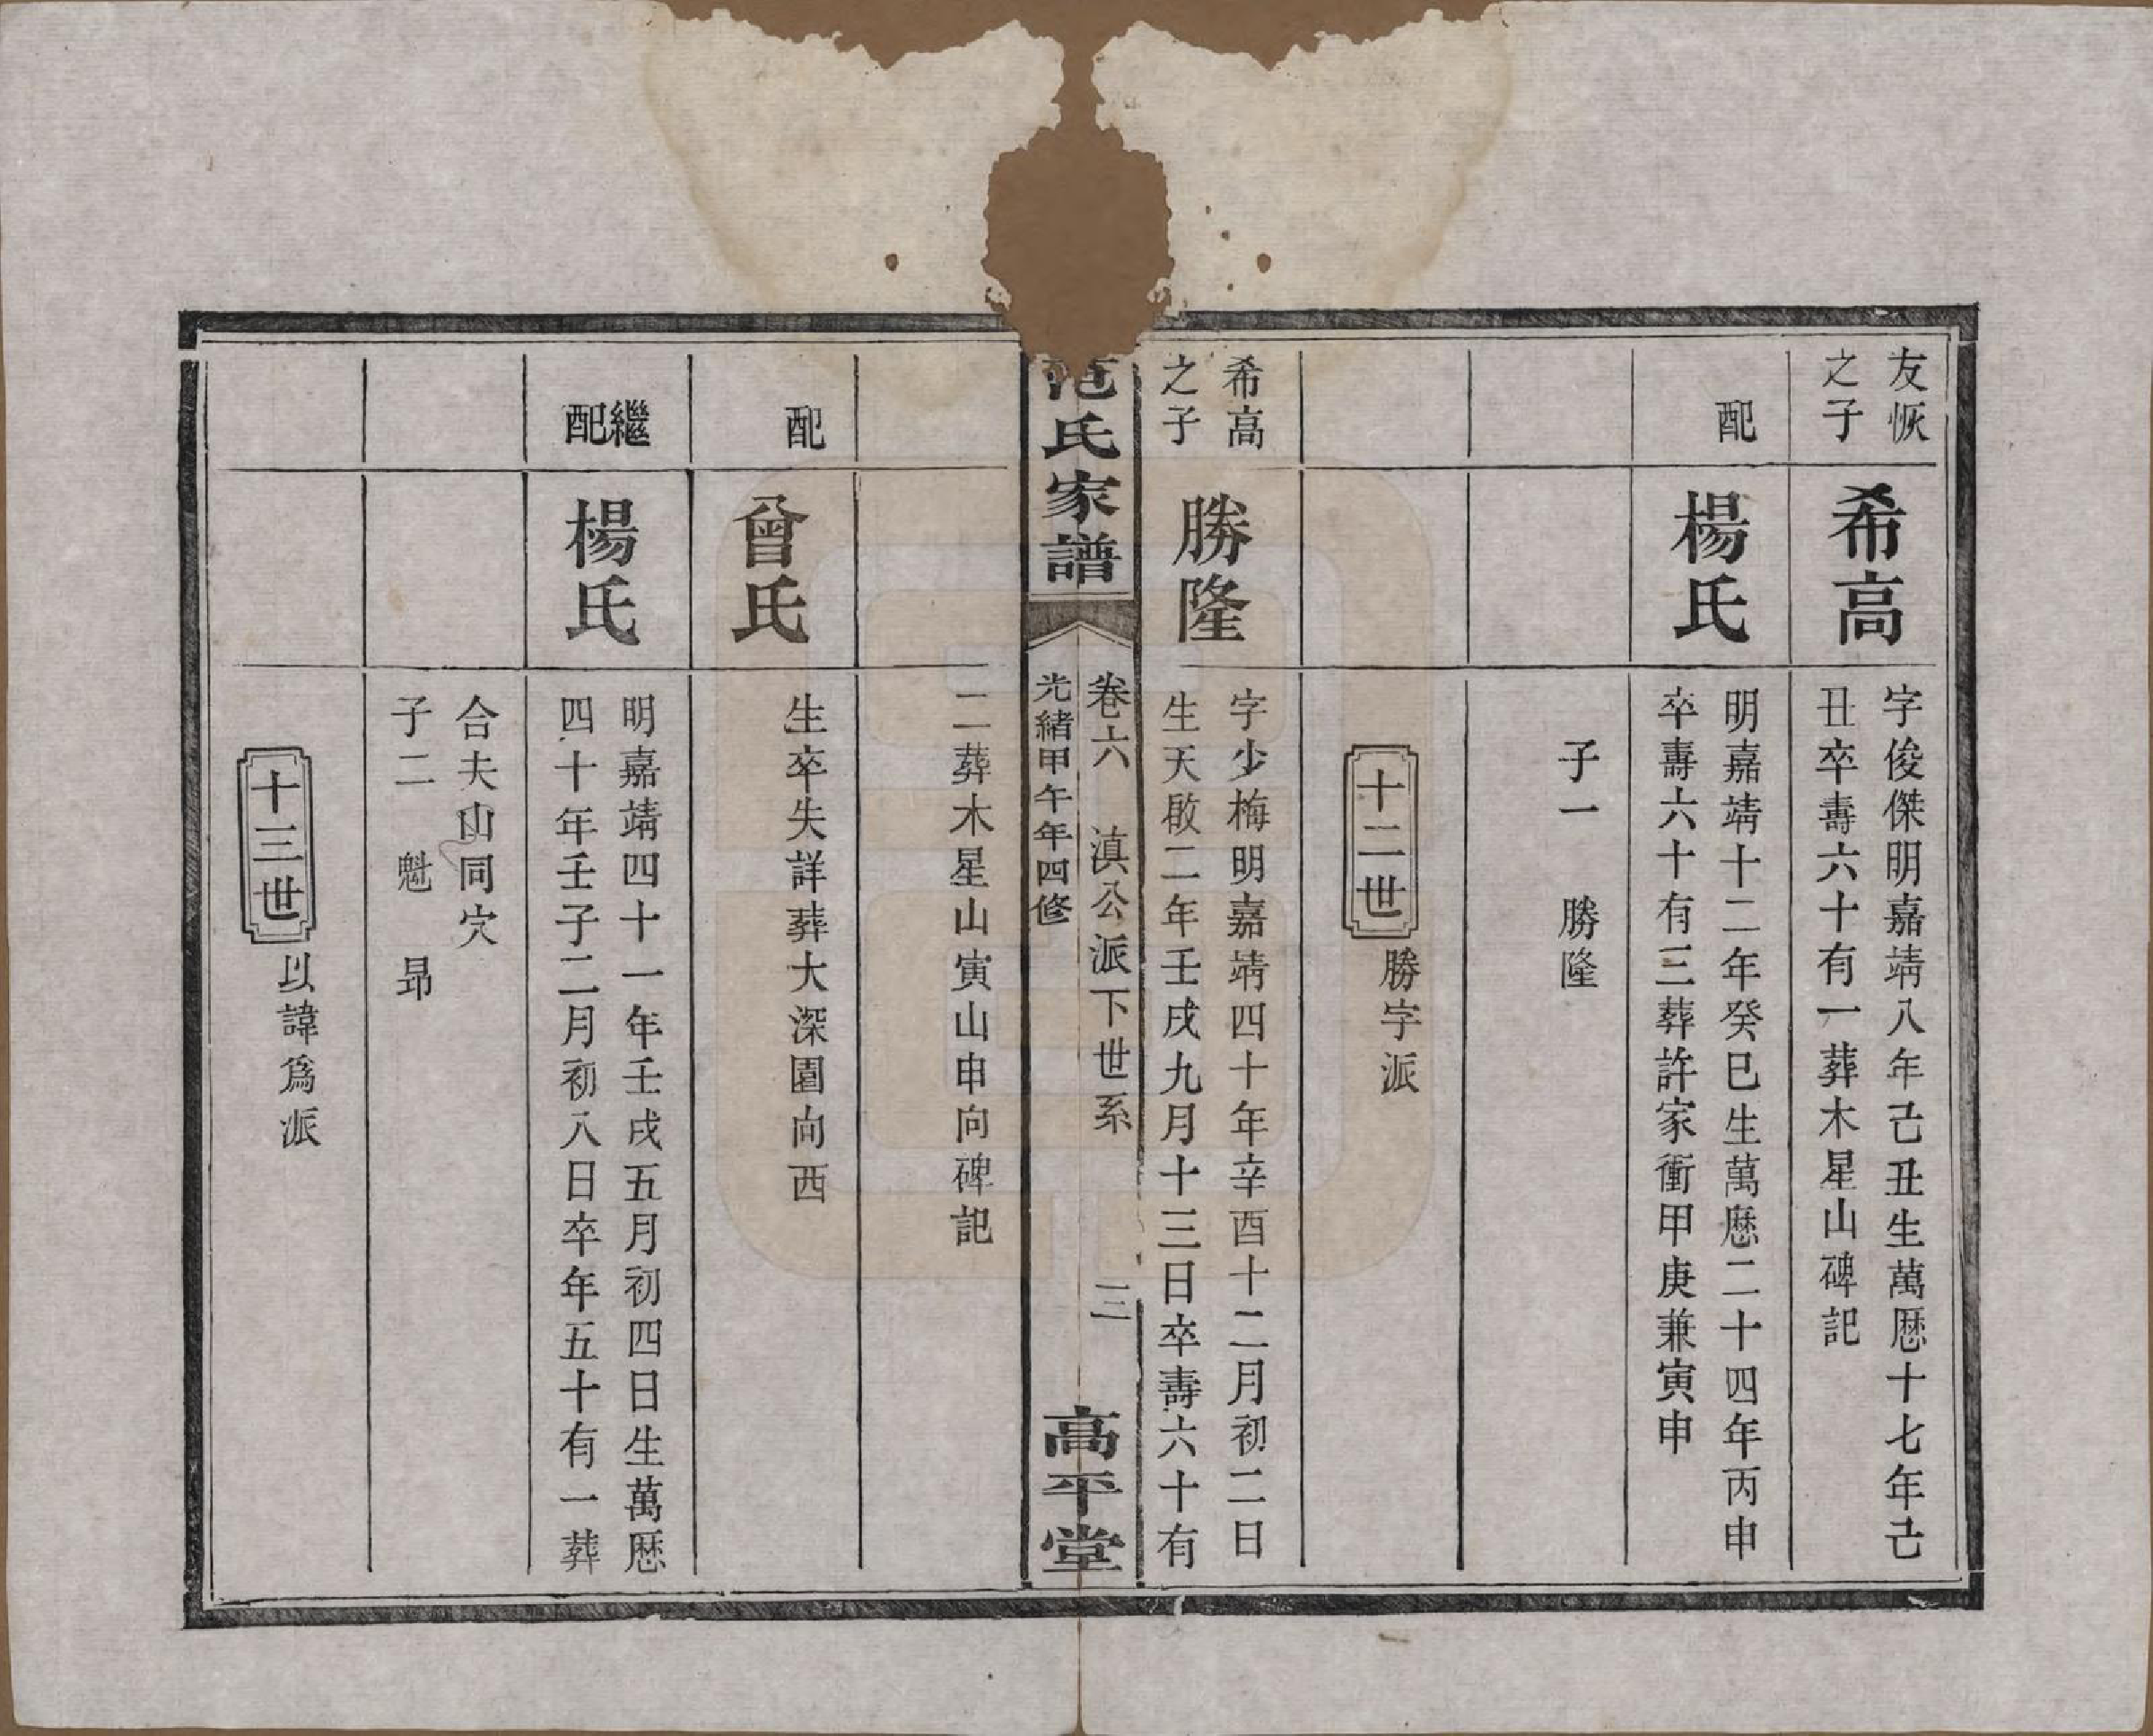 友恢
之子
希高
字俊傑明嘉靖八年己丑生萬歷十七年己
丑卒壽六十有一葬木星山碑記
配
楊氏
明嘉靖十二年癸巳生萬歷二十四年丙申
卒壽六十有三葬許家衝甲庚兼寅申
子一　勝隆
十二世
勝字派
希高
之子
勝隆
字少梅明嘉靖四十年辛酉十二月初二日
生天啟二年壬戌九月十三日卒壽六十有
范氏家譜
卷六　滇公派下世系　三
光緒甲午年四修
高平堂
二葬木星山寅山申向碑記
配
曾氏
生卒失詳葬大深園向西
繼
配
楊氏
明嘉靖四十一年壬戌五月初四日生萬歷
四十年壬子二月初八日卒年五十有一葬
合夫山同穴
子二　魁　昻
十三世
以諱爲派